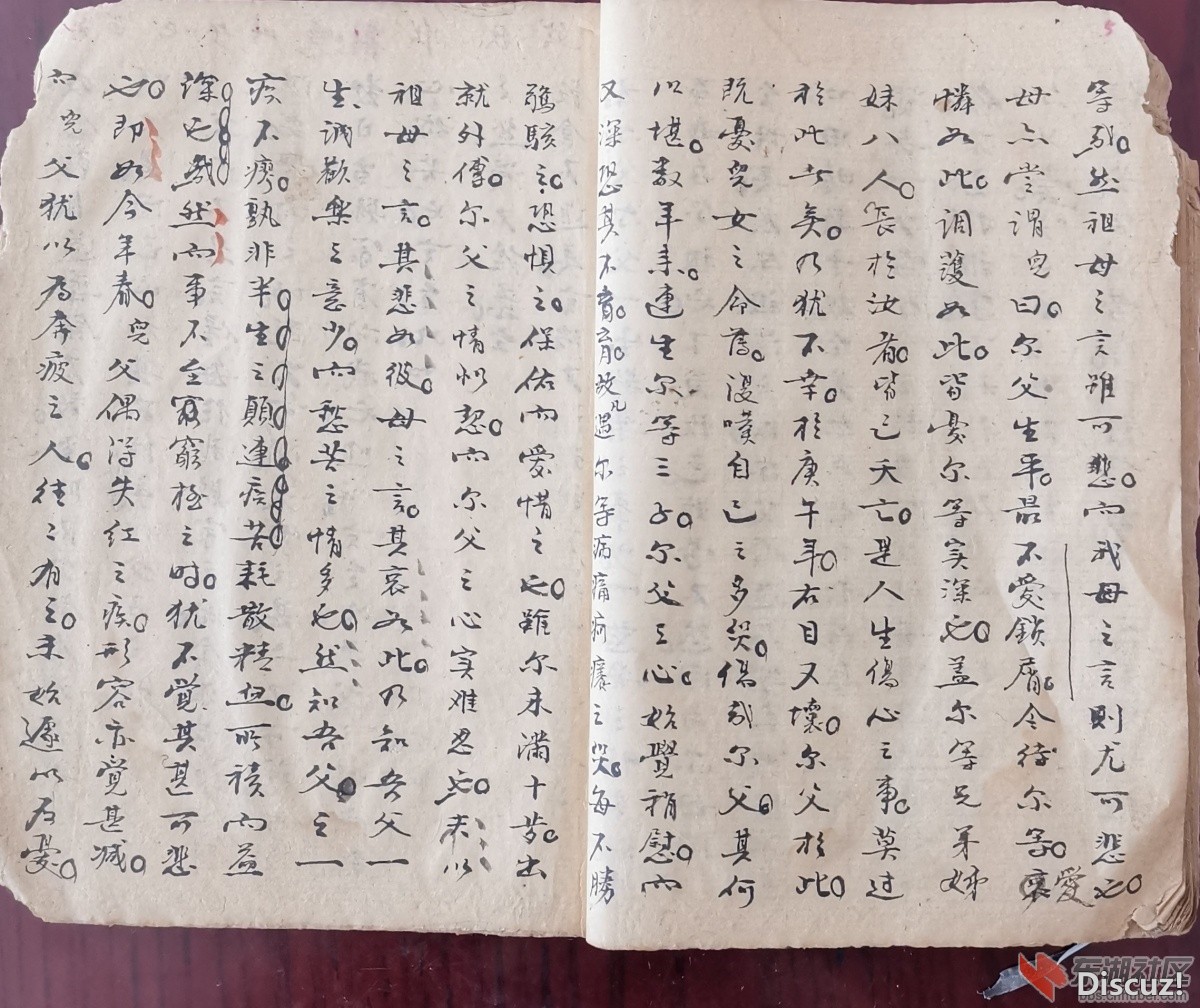 等哉。然祖母之言雖可悲。而我母之言則尤可悲也。
母亦嘗謂兒曰。尔父生平。最不愛鎖屑。今待尔等。哀愛
憐如此。調護如此。皆憂尔等实深也。蓋尔等兄弟姊
妹八人。長於汝者。皆已夭亡。是人生傷心之事。莫过
於此者矣。乃犹不幸。於庚午年。右目又壞。尔父於此。
既憂兒女之命薄。復嘆自己之多災。傷哉尔父。其何
以堪。数年来。連生尔等三子。尔父之心。始覺稍慰。而
又深恐其不育。育。故凡遇尔等病痛疴癢之災。每不勝
驚駭之。恐惧之。保佑而愛惜之也。雖尔未滿十歩。出
就外傅。尔父之情似恝。而尔父之心实难忍也。来以
祖母之言。其悲如彼。母之言。其哀如此。乃知吾父一
生、誠歡樂之意少。而愁苦之情多也。然知吾父。之一
疾不瘳。孰非半生之顛連疾苦。耗散精血。所積而益
深也哉。然而事不至窮極之时。犹不覺其甚可悲
也。即如今年春。兒父偶得失红之疾。形容亦覚甚減。
而兒父犹以為奔疲之人。徃々有之。未始遽以为憂。
5
东湖社区
bbs.cnhubei.com
Discuz!